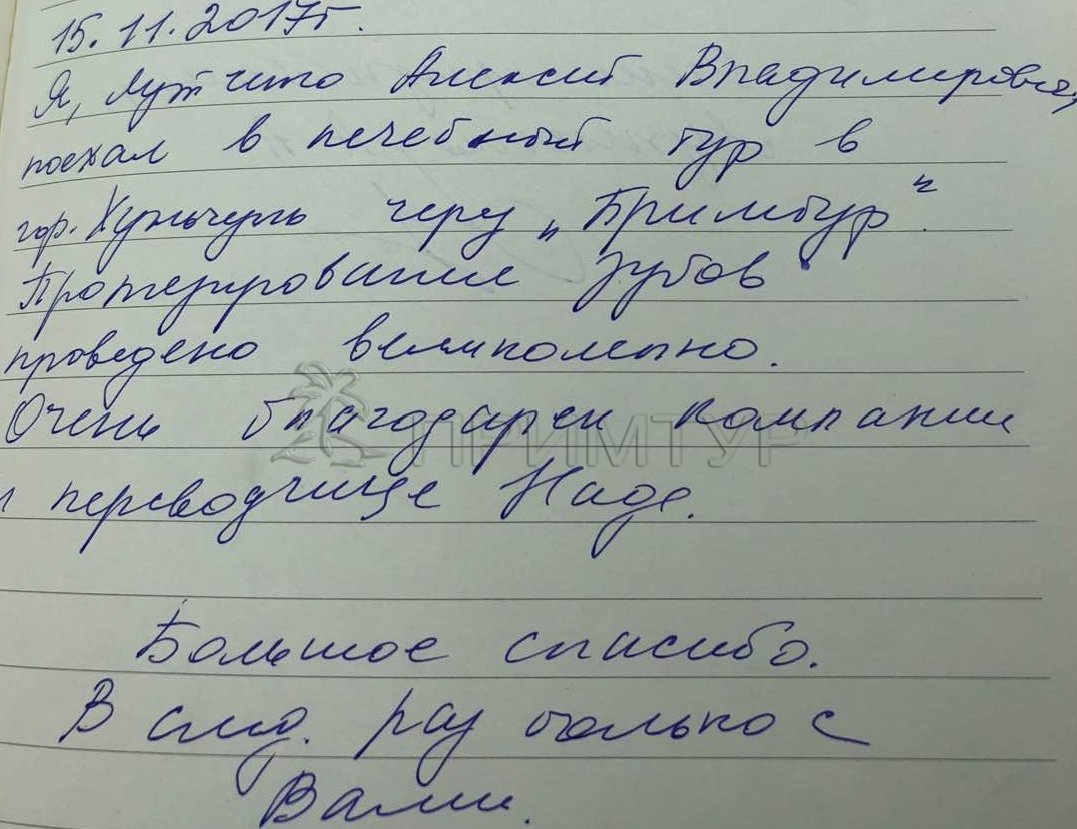 15.11.2017г.
Я, Алексей Владимирович,
поехал в лечебный тур в
гор. Хуньчунь через „Примтур“.
Протезирование зубов
проведено великолепно.
Очень благодарен компании
и переводчице Наде.
ПРИМТУР
Большое спасибо.
В след. раз только с
Вами.